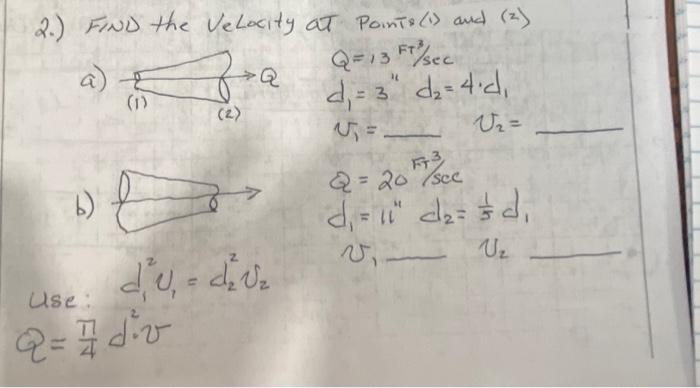 2.) FIND the Velocity at Points (1) and (2)
a) (1) (2) Q
Q = 13 FT³/sec
d₁ = 3" d₂ = 4·d₁
v₁ = ____ v₂ = ____
b)
Q = 20 FT³/sec
d₁ = 11" d₂ = 1/5 d₁
v₁ ____ v₂ ____
Use: d₁²v₁ = d₂²v₂
Q = π/4 d²·v